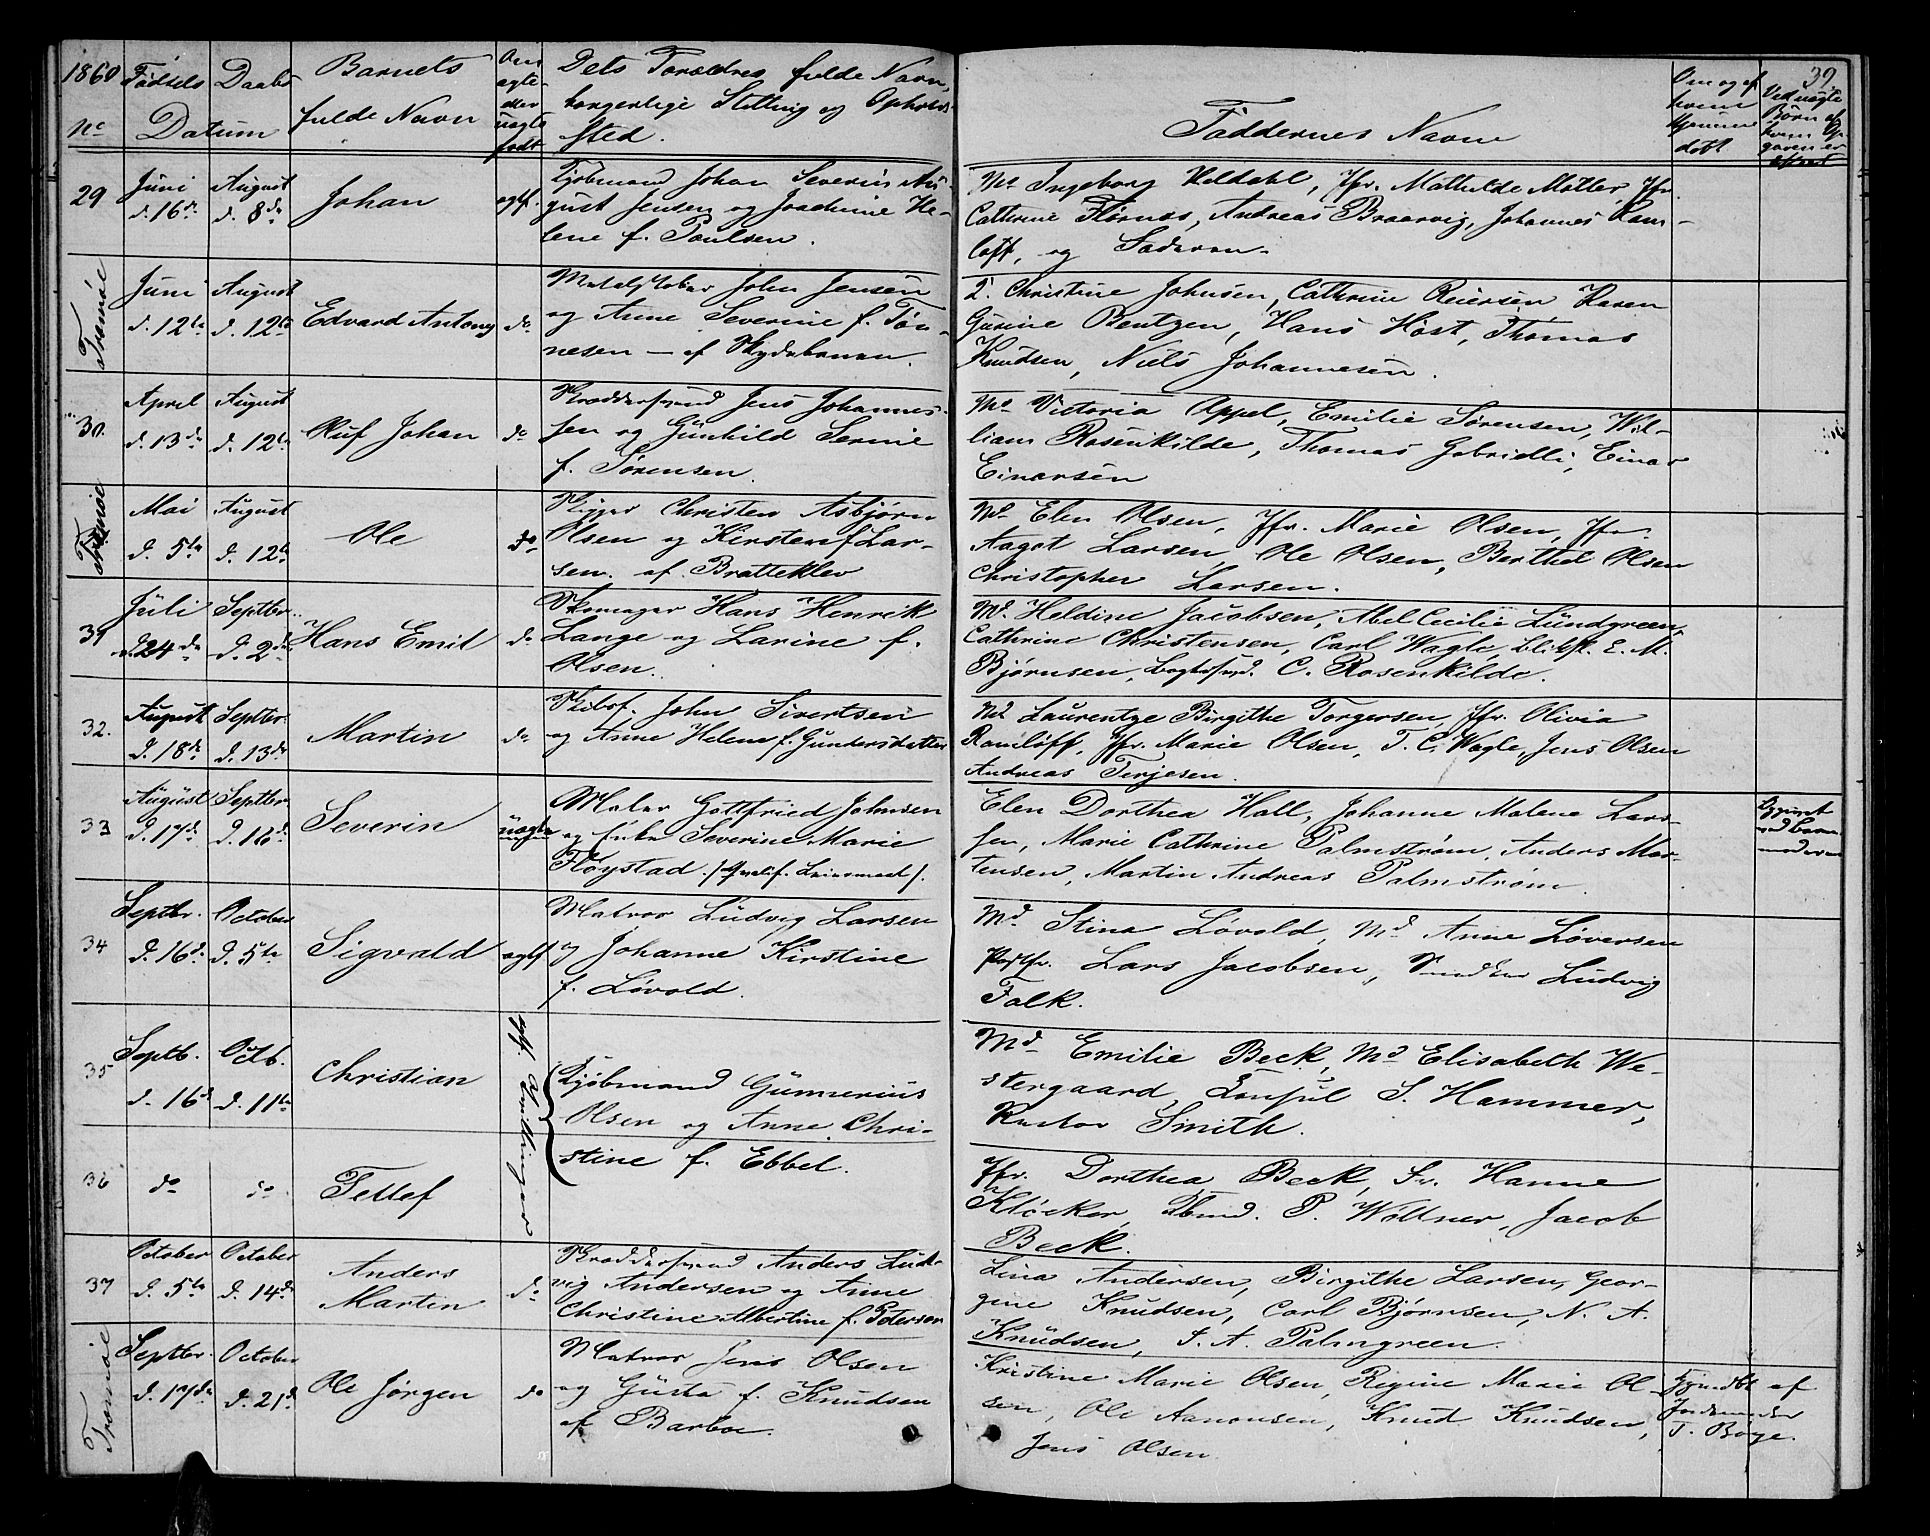 1860
No
Fødsels Daabs
Datum
Barnets
fulde Navn
Om
egte
eller
uægte
født
Dets Forældres fulde Navn,
borgerlige Stilling og Opholds-
sted.
Faddernes Navne
Om og af
hvem
hjemme
døbt
39.
Ved uægte
Børn af
hvem Op-
gaven er
29
Juni
d. 16de
August
d. 8de
Johan
ægtf.
Kjøbmand Johan Severin Au-
gust Jensen og Joachime He-
lene f. Paulsen.
Md Ingeborg Keldahl, Jfr. Mathilde Møller, Jfr.
Cathrine Flørnæs, Andreas Braarvig, Johannes Ram-
løff, og Faderen.
Tromøe
Juni
d. 12te
August
d. 12te
Edvard Antony
do
John Jensen
og Anne Severine f. Tøn-
nesen — af Skydebanen.
2. Christine Johnsen, Cathrine Reiersen Karen
Gurine Bentzen, Hans Høst, Thomas
Knudsen, Niels Johannesen.
30.
April
d. 13de
August
d. 12te
Ruf Johan
do
Skræddersvend Jens Johannes-
sen og Gunhild Serine
f. Sørensen.
Md Victoria Appel, Emilie Sørensen, Wil-
liam Rosenkilde, Thomas Gabrielli, Einar
Einarsen
Tromøe
Mai
d. 5te
August
d. 12te
Ole
do
Skipper Christen Asbjørn
Olsen og Kirsten f. Lar-
sen. af Bratteklev
Md Elen Olsen, Jfr. Marie Olsen, Jfr.
Aagot Larsen, Ole Olsen, Berthel Olsen
Christopher Larsen.
31
Juli
d. 24de
Septbr.
d. 2de
Hans Emil
do
Skomager Hans Henrik
Lange og Larine f.
Olsen.
Md. Heldine Jacobsen, Abel Cecilie Lundgreen,
Cathrine Christensen, Carl Wagle, E. M.
Bjørnsen, C. Rosenkilde.
32.
August
d. 18de
Septbr.
d. 13de
Martin
do
Skibsf. John Sivertsen
og Anne Helene f. Gundersdatter
Md Laurentze Birgithe Torgersen, Jfr. Olivia
Ramløff, Jfr. Marie Olsen, T. C. Wagle, Jens Olsen
Andreas Terjesen.
33
August
d. 17de
Septbr.
d. 16de
Severin
uægte
Maler Gottfried Johnsen
og Enke Severine Marie
Fløystad.
Elen Dorthea Hall, Johanne Malene Lars-
sen, Marie Cathrine Palmstrøm, Anders Mor-
tensen, Martin Andreas Palmstrøm.
34
Septbr.
d. 16de
October
d. 5te
Sigvald
ægtf.
Matros Ludvig Larsen
og Johanne Kirstine
f. Løvold.
Md. Stina Løvold, Md. Anne Løversen
Lars Jacobsen, Ludvig
Falk.
35
Septb.
d. 16d
Octb.
d. 11te
Christian
Tvillinger
Kjøbmand Gunnerius
Olsen og Anne Chri-
stine f. Ebbel.
Md Emilie Beck, Md Elisabeth We-
stergaard, Consul S. Hammer,
Kastor Smith.
36
do
do
Tellef
Jfr. Dorthea Beck, Fr. Hanne
Kløcker, P. Wollner, Jacob
Beck.
37
October
d. 5te
October
d. 14de
Anders
Martin
do
Skræddersvend Anders Lud-
vig Andersen og Anne
Christine Albertine f. Peterson
Lina Andersen, Birgithe Larsen, Geor-
gine Knudsen, Carl Bjørnsen, N. A.
Knudsen, S. A. Palmgreen.
Tromøe
Septbr.
d. 17de
October
d. 21de
Ole Jørgen
do
Matros Jens Olsen
og Gusta f. Knudsen
af Barboe.
Kristine Marie Olsen, Regine Marie Ol-
sen, Ole Aanonsen, Knud Knudsen,
Jens Olsen
Hjemdøbt af
Jordemoder
T. Boye.